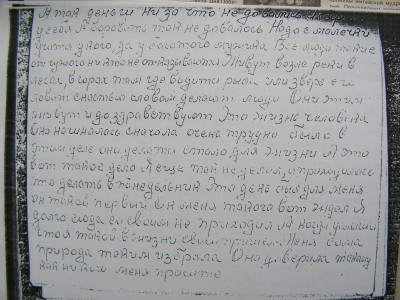 А так деньги ни за что не давались
усел А воровать так не довалось Надо с молочка
учится у кого, да у рогатого мужика Все люди такие
от чужого ни кто не отказывается Живут возле реки в
лесах, в горах там где водится рыба или зверь его
ловят снастью словом делают люди Они этим
живут и здравствуют Эта жизнь человека
Она начиналась сначала очень трудно было в
этом деле она делать стала, для жизни А это
вот такое дело Я еще так не делал, а приходилось
то делать в понедельник Эта день был для меня
он такой первый он меня такого вот ждал Я
долго сюда со своим не приходил А когда услышал
что я такой в жизни своей пришел Меня сама
природа таким избрала Она доверила
как ни кого меня просите